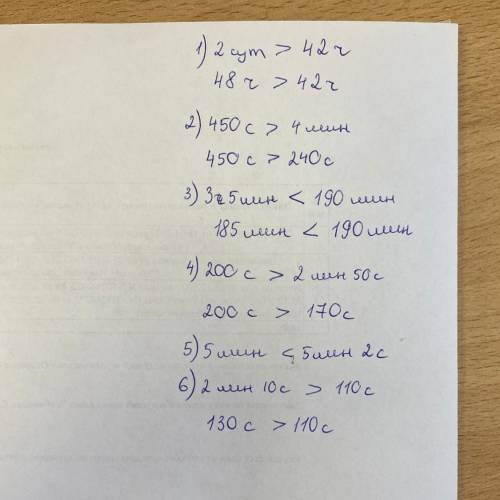 1) 2 сут > 42 ч
48 ч > 42 ч
2) 450 с > 4 мин
450 с > 240 с
3) 3ч 5 мин < 190 мин
185 мин < 190 мин
4) 200 с > 2 мин 50 с
200 с > 170 с
5) 5 мин < 5 мин 2 с
6) 2 мин 10 с > 110 с
130 с > 110 с